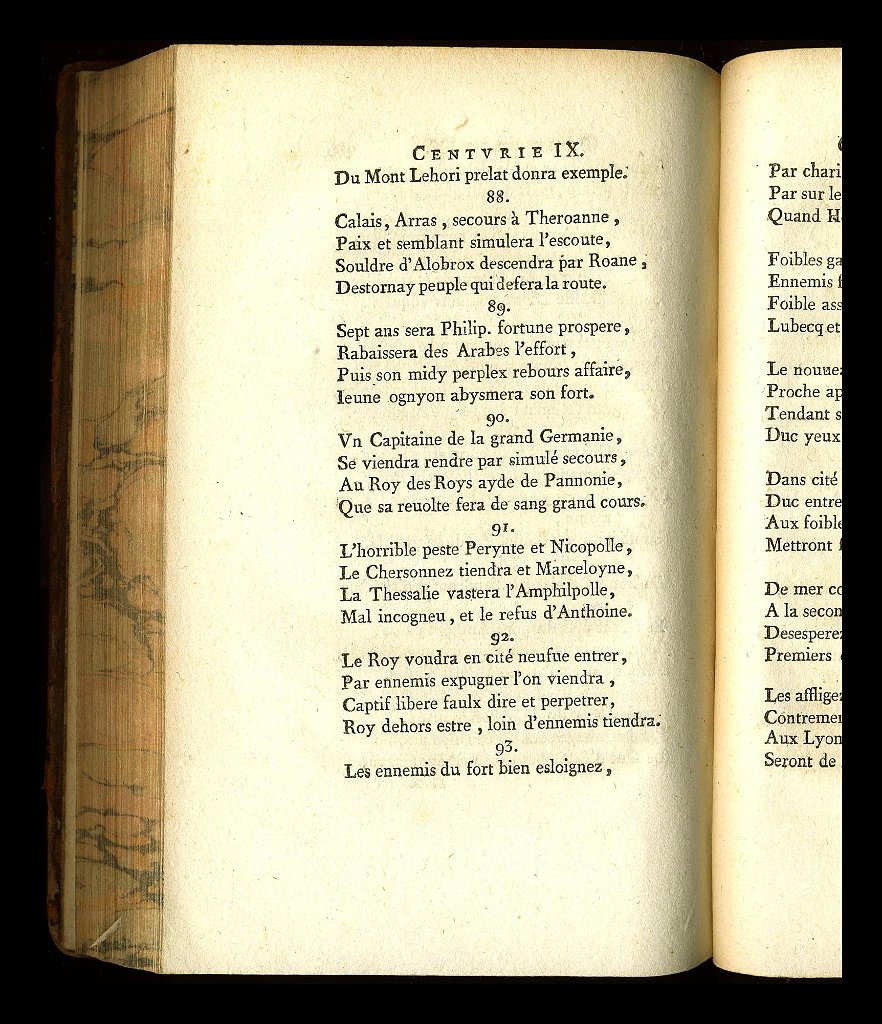 CENTVRIE IX.
Du Mont Lehori prelat donra exemple.
88.
Calais, Arras, secours à Theroanne,
Paix et semblant simulera l'escoute,
Souldre d'Alobrox descendra par Roane,
Destornay peuple qui defera la route.
89.
Sept ans sera Philip. fortune prospere,
Rabaissera des Arabes l'effort,
Puis son midy perplex rebours affaire,
Ieune ognyon abysmera son fort.
90.
Vn Capitaine de la grand Germanie,
Se viendra rendre par simulé secours,
Au Roy des Roys ayde de Pannonie,
Que sa reuolte fera de sang grand cours.
91.
L'horrible peste Perynte et Nicopolle,
Le Chersonnez tiendra et Marceloyne,
La Thessalie vastera l'Amphilpolle,
Mal incogneu, et le refus d'Anthoine.
92.
Le Roy voudra en cité neufue entrer,
Par ennemis expugner l'on viendra,
Captif libere faulx dire et perpetrer,
Roy dehors estre, loin d'ennemis tiendra.
93.
Les ennemis du fort bien esloignez,
Par chari
Par sur le
Quand H
Foibles ga
Ennemis
Foible ass
Lubecq et
Le nouue
Proche ap
Tendant s
Duc yeux
Dans cité
Duc entre
Aux foible
Mettront
De mer co
A la secon
Desespere
Premiers
Les afflige
Contreme
Aux Lyon
Seront de